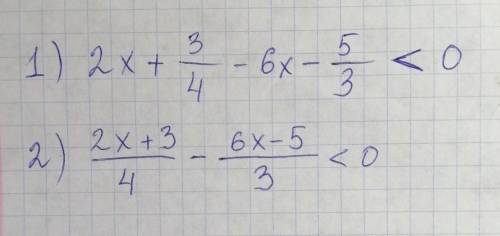 1) 2x + 3/4 - 6x - 5/3 < 0
2) (2x+3)/4 - (6x-5)/3 < 0